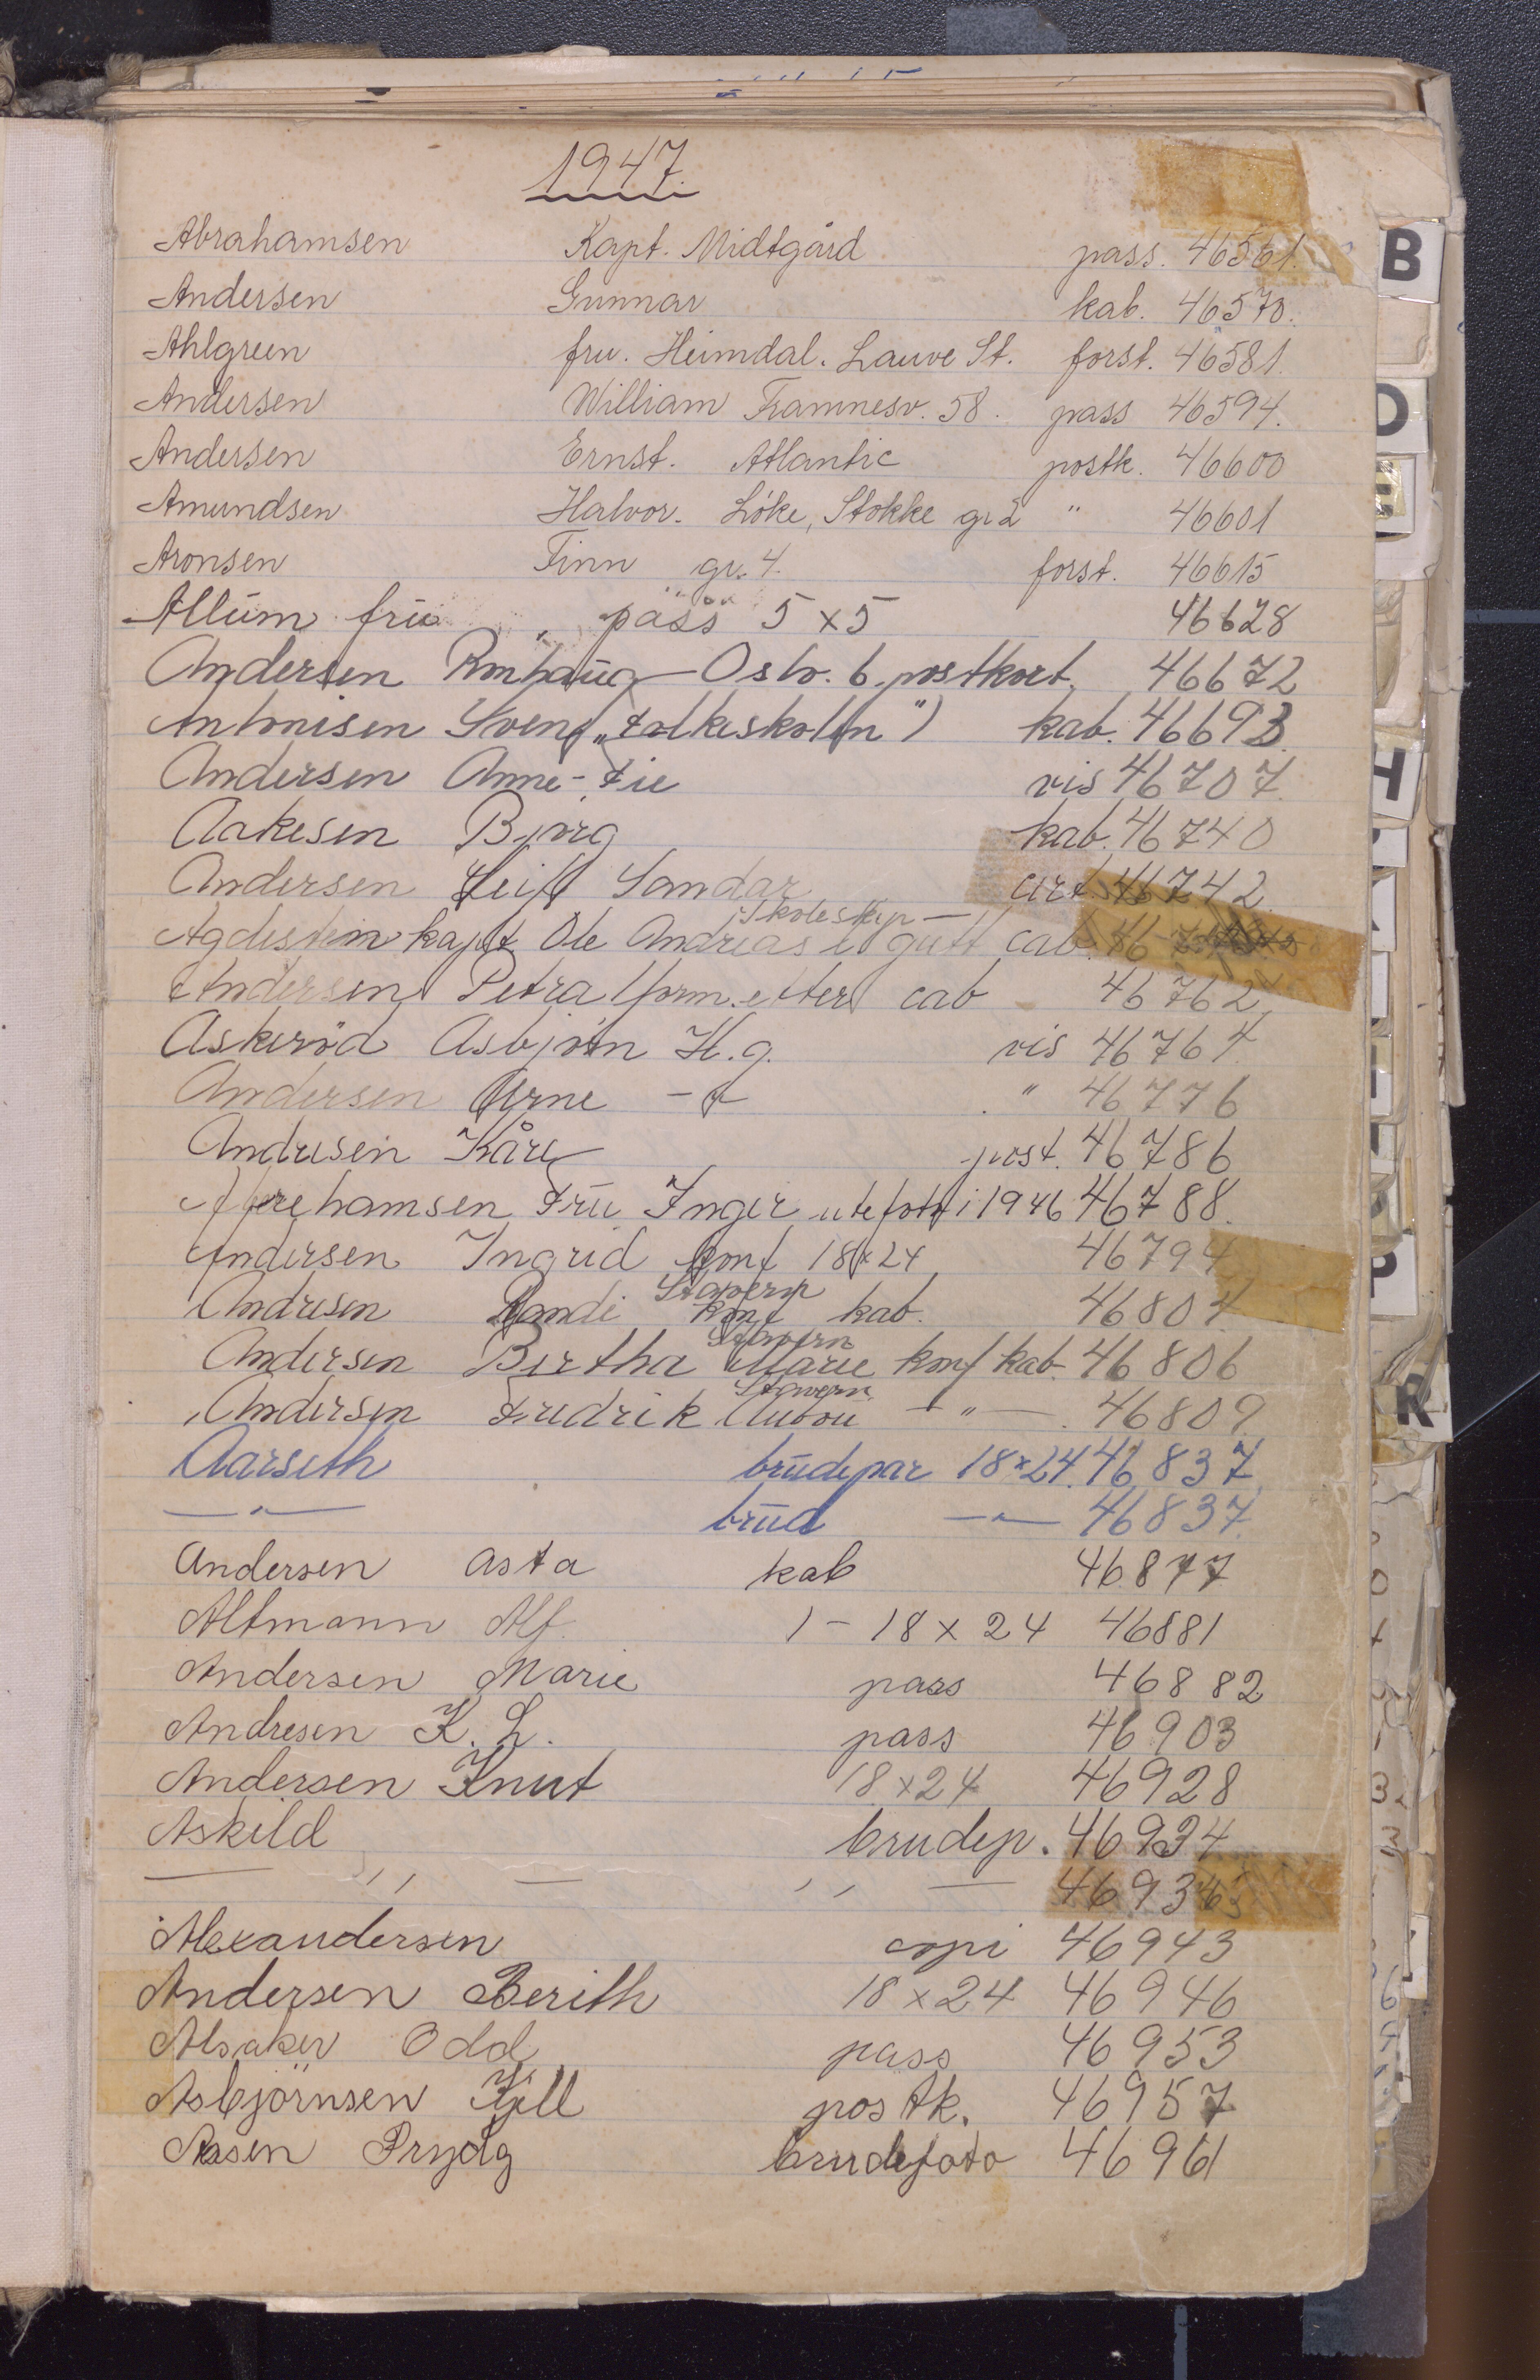 1947.
Abrahamsen Kapt. Midtgård pass. 46561.
Andersen Gunnar kab. 46570.
Ahlgreen fru. Heimdal. Lauve St. forst. 46581.
Andersen William Framnesv. 58. pass 46594.
Andersen Ernst. Atlantic postk. 46600
Amundsen Halvor. Löke, Stokke gr 2 " 46601
Aronsen Finn gr. 4. forst. 46615
Allum fru pass 5 x 5 46628
Andersen Oslo. 6 postkort. 46672
Antonisen Svend „Folkeskolen") kab. 46693.
Andersen Anne-Fie vis 46707.
Aakesen Bjørg kab. 46740
Andersen Leif Sandar art. 46742.
Skoleskip —
Agdestein kapt Ole Andreas gutt cab.
Andersen Petra form. etter cab 46762
Askerød Asbjørn H.g. vis 46764.
Andersen Arne " 46776
Andresen Kåre post. 46786
Abrehamsen Fru Inger utefoto i 1946 46788.
Andersen Ingrid konf 18x24 46794
Stavern
Andresen Randi konf kab. 46804
Stavern
Andersen Bertha Marie konf kab. 46806
Stavern
Andersen Fredrik Anton — " — . 46809
Aarseth brudepar 18x24. 46837
— " — brud — " — 46837.
Andersen Asta kab 46877
Altmann Alf. 1 - 18 x 24 46881
Andersen Marie pass 46882
Andresen K. L. pass 46903
Andersen Knut 18 x 24 46928
Askild brudep. 46934
— " — " —
Alexandersen copi 46943
Andersen Berith 18 x 24 46946
Alsaker Odd pass 46953
Asbjörnsen Kjell postk. 46957
Aasen brudefoto 46961
B
D
E
H
P
R